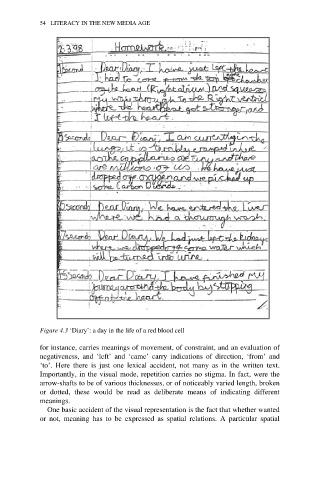 54 LITERACY IN THE NEW MEDIA AGE
2.3.98 Homework
1Second Dear Diary, I have just left the heart
I had to come from the top chamber
of the heart (Right atrium) and squeeze
my way through to the Right ventricl
where the heart beat got stronger and
I left the heart.
8seconds Dear Diary, I am currently in the
lungs, it is terribly cramped in here
as the capilaries are tiny and there
are millions of us. We have just
dropped off oxygen and we picked up
some Carbon Dioxide.
10seconds Dear Diary, We have entered the liver
where we had a thourough wash.
12seconds Dear Diary, We had just left the kidneys
where we dropped off some water which
will be turned into urine.
15seconds Dear Diary, I have finished my
journey around the body by stopping
off at the heart.
Figure 4.3 ‘Diary’: a day in the life of a red blood cell
for instance, carries meanings of movement, of constraint, and an evaluation of
negativeness, and ‘left’ and ‘came’ carry indications of direction, ‘from’ and
‘to’. Here there is just one lexical accident, not many as in the written text.
Importantly, in the visual mode, repetition carries no stigma. In fact, were the
arrow-shafts to be of various thicknesses, or of noticeably varied length, broken
or dotted, these would be read as deliberate means of indicating different
meanings.
One basic accident of the visual representation is the fact that whether wanted
or not, meaning has to be expressed as spatial relations. A particular spatial